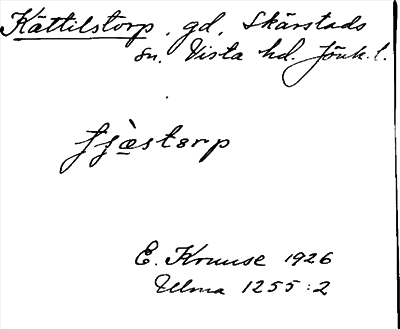 Kättilstorp, gd, Skärstads
sn. Vista hd. Jönk. l.
E. Kruuse 1926
Ulma 1255:2